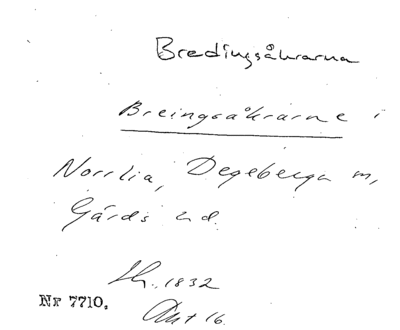 Bredingsåkrarna
Breingsåkrarne i
Norrlia, Degeberga m,
Gärds hd.
1832
Akt 16.
Nr 7710.